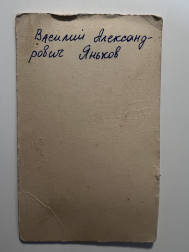 Василий Александ-
рович Яньков